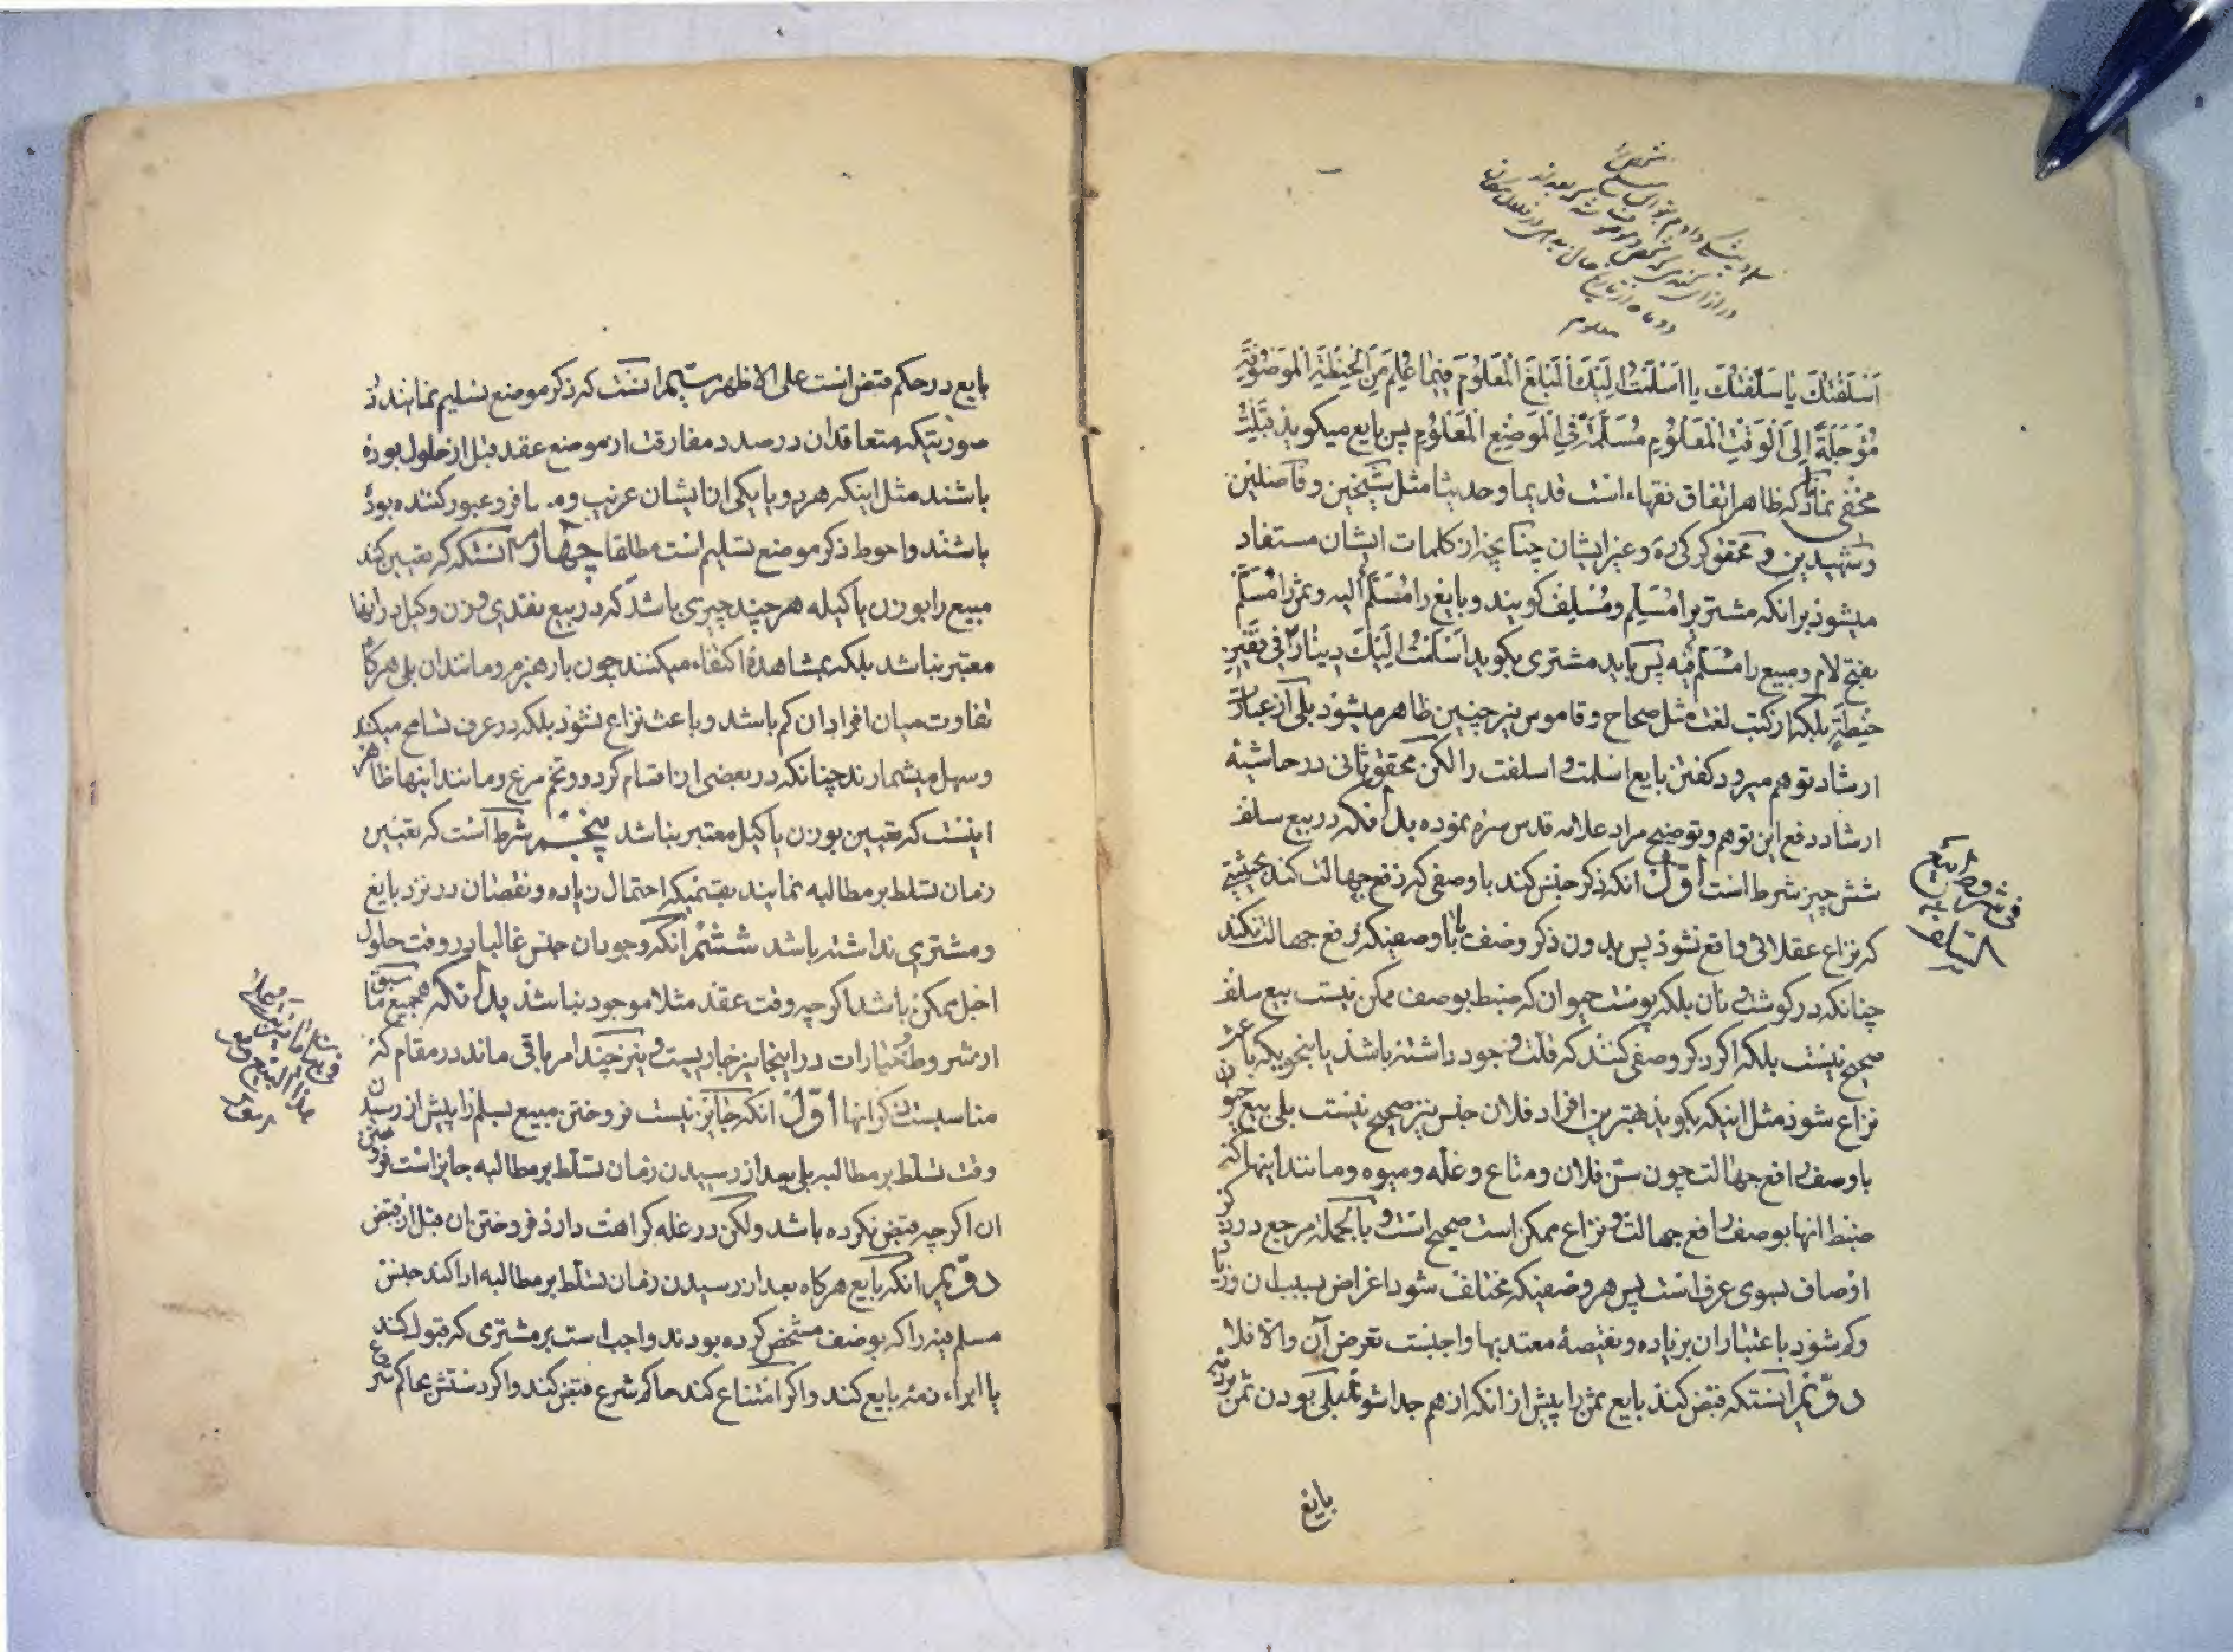 اَسْلَفْتُكَ یا سَلَّفْتُكَ یا اَسْلَمْتُ اِلَیْكَ الْمَبْلَغَ الْمَعْلُوْمَ فِیْمَا عُلِمَ مِنَ الْحِنْطَةِ الْمَوْصُوْفَةِ
مُؤَجَّلَةً اِلَی الْوَقْتِ الْمَعْلُوْمِ مُسَلَّمَةً فِی الْمَوْضِعِ الْمَعْلُوْمِ پس بایع میکوید قَبِلْتُ
مخفی نماند که ظاهر اتفاق فقهاء است قدیما و حدیثا مثل شیخین و فاضلین
و شهیدین و محقق کرکی ره و غیر ایشان چنانچه از کلمات ایشان مستفاد
میشود بر انکه مشتری را مُسْلِم و مُسْلِف کویند و بایع را مُسْلَمٌ الیه و ثمن را مُسْلَم
بفتح لام و مبیع را مُسْلَمٌ فیه پس باید مشتری بکوید اَسْلَمْتُ اِلَیْكَ دِیْنَارًا فِی قَفِیْزِ
حِنْطَةٍ بلکه از کتب لغت مثل صحاح و قاموس نیز چنین ظاهر میشود بلی از عبارة
ارشاد توهم میرود کفتن بایع اسلمت و اسلفت را لکن محقق ثانی در حاشیه
ارشاد دفع این توهم و توضیح مراد علامه قدس سره نموده بدانکه در بیع سلف
شش چیز شرط است اوّل انکه ذکر جنس کند با وصفی که رفع جهالت کند بحیثیتی
که نزاع عقلائی واقع نشود پس بدون ذکر وصف یا با وصفیکه رفع جهالت نکند
چنانکه در کوشت و نان بلکه پوست حیوان که ضبط بوصف ممکن نیست بیع سلف
صحیح نیست بلکه اکر ذکر وصفی کنند که قلّت وجود داشته باشد یا بنحویکه باعث
نزاع شود مثل اینکه بکوید بهترین افراد فلان جنس نیز صحیح نیست بلی بیع حیوان
با وصف رافع جهالت چون سنّ فلان و متاع و غله و میوه و مانند اینها که
ضبط انها بوصف رافع جهالت و نزاع ممکن است صحیح است و بالجملة مرجع در ذکر
اوصاف بسوی عرف است پس هر وصفیکه مختلف شود اغراض بسبب ان و زیاد
و کم شود باعتبار ان بزیاده و نقیصهٔ معتد بها واجبست تعرض آن والّا فلا
دوّیم انستکه قبض کند بایع ثمن را پیش از انکه از هم جدا شوند بلی بودن ثمن بر ذمّه
بایع
فی شروط بیع
السّلف
بایع در حکم قبض است علی الاظهر سیّم انست که ذکر موضع تسلیم نمایند در
صورتیکه متعاقدان در صدد مفارقت از موضع عقد قبل از حلول بوده
باشند مثل اینکه هر دو یا یکی از ایشان غریب و مسافر و عبور کننده بوده
باشند و احوط ذکر موضع تسلیم است مطلقا چهارم انستکه که تعیین کند
مبیع را بوزن یا کیله هر چند چیزی باشد که در بیع نقدی وزن و کیل در انها
معتبر نباشد بلکه بمشاهده اکتفاء میکنند چون بار هیزم و مانند ان بلی هر کاه
تفاوت میان افراد ان کم باشد و باعث نزاع نشود بلکه در عرف تسامح میکند
و سهل میشمارند چنانکه در بعضی از اقسام کردو و تخم مرغ و مانند اینها ظاهر
اینست که تعیین بوزن یا کیل معتبر نباشد پنجم شرط آنست که تعیین
زمان تسلط بر مطالبه نمایند بقسمیکه احتمال زیاده و نقصان در نزد بایع
و مشتری نداشته باشد ششم انکه وجود ان جنس غالبا در وقت حلول
اجل ممکن باشد اکر چه وقت عقد مثلا موجود نباشد بدانکه جمیع ما سبق
از شروط و خیارات در اینجا نیز جاریست و نیز چند امر باقی ماند در مقام که
مناسبست ذکر انها اوّل انکه جایز نیست فروختن مبیع بسلم را پیش از رسیدن
وقت تسلّط بر مطالبه بلی بعد از رسیدن زمان تسلّط بر مطالبه جایز است فروختن
ان اکر چه قبض نکرده باشد ولکن در غله کراهت دارد فروختن ان قبل از قبض
دوّیم انکه بایع هر کاه بعد از رسیدن زمان تسلّط بر مطالبه ادا کند جنس
مسلم فیه را که بوصف مشخص کرده بودند واجب است بر مشتری که قبول کند
یا ابراء ذمّه بایع کند و اکر امتناع کند حاکم شرع قبض کند و اکر دستش بحاکم شرع